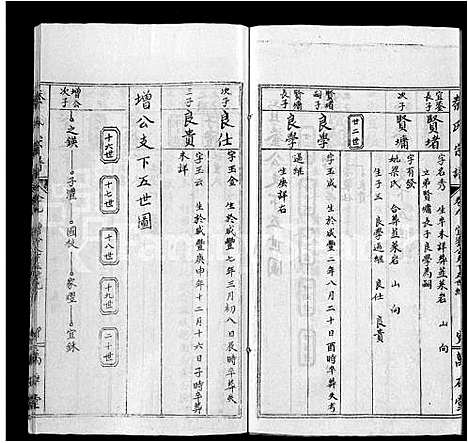 宜鋆
長子
賢堵
字名秀 生卒未詳葬藍菜岩 山 向
立弟賢墉長子良學為嗣
次子
賢墉
字有管
妣梁氏 合葬藍菜岩 山 向
生子三 良學過繼 良仕 良貴
廿二世
賢堵
嗣子
良學
字玉成 生於咸豐二年八月二十日酉時卒葬失考
賢墉
長子
良學
過繼
生庚詳右
次子
良仕
字玉金 生於咸豐七年三月初八日辰時卒葬失考
三子
良貴
字玉云 生於咸豐庚申年十二月十六日子時卒葬
未詳
增公支下五世圖
十六世
十七世
十八世
十九世
二十世
增公
次子
之鍈
子澧
國
家
宜銖